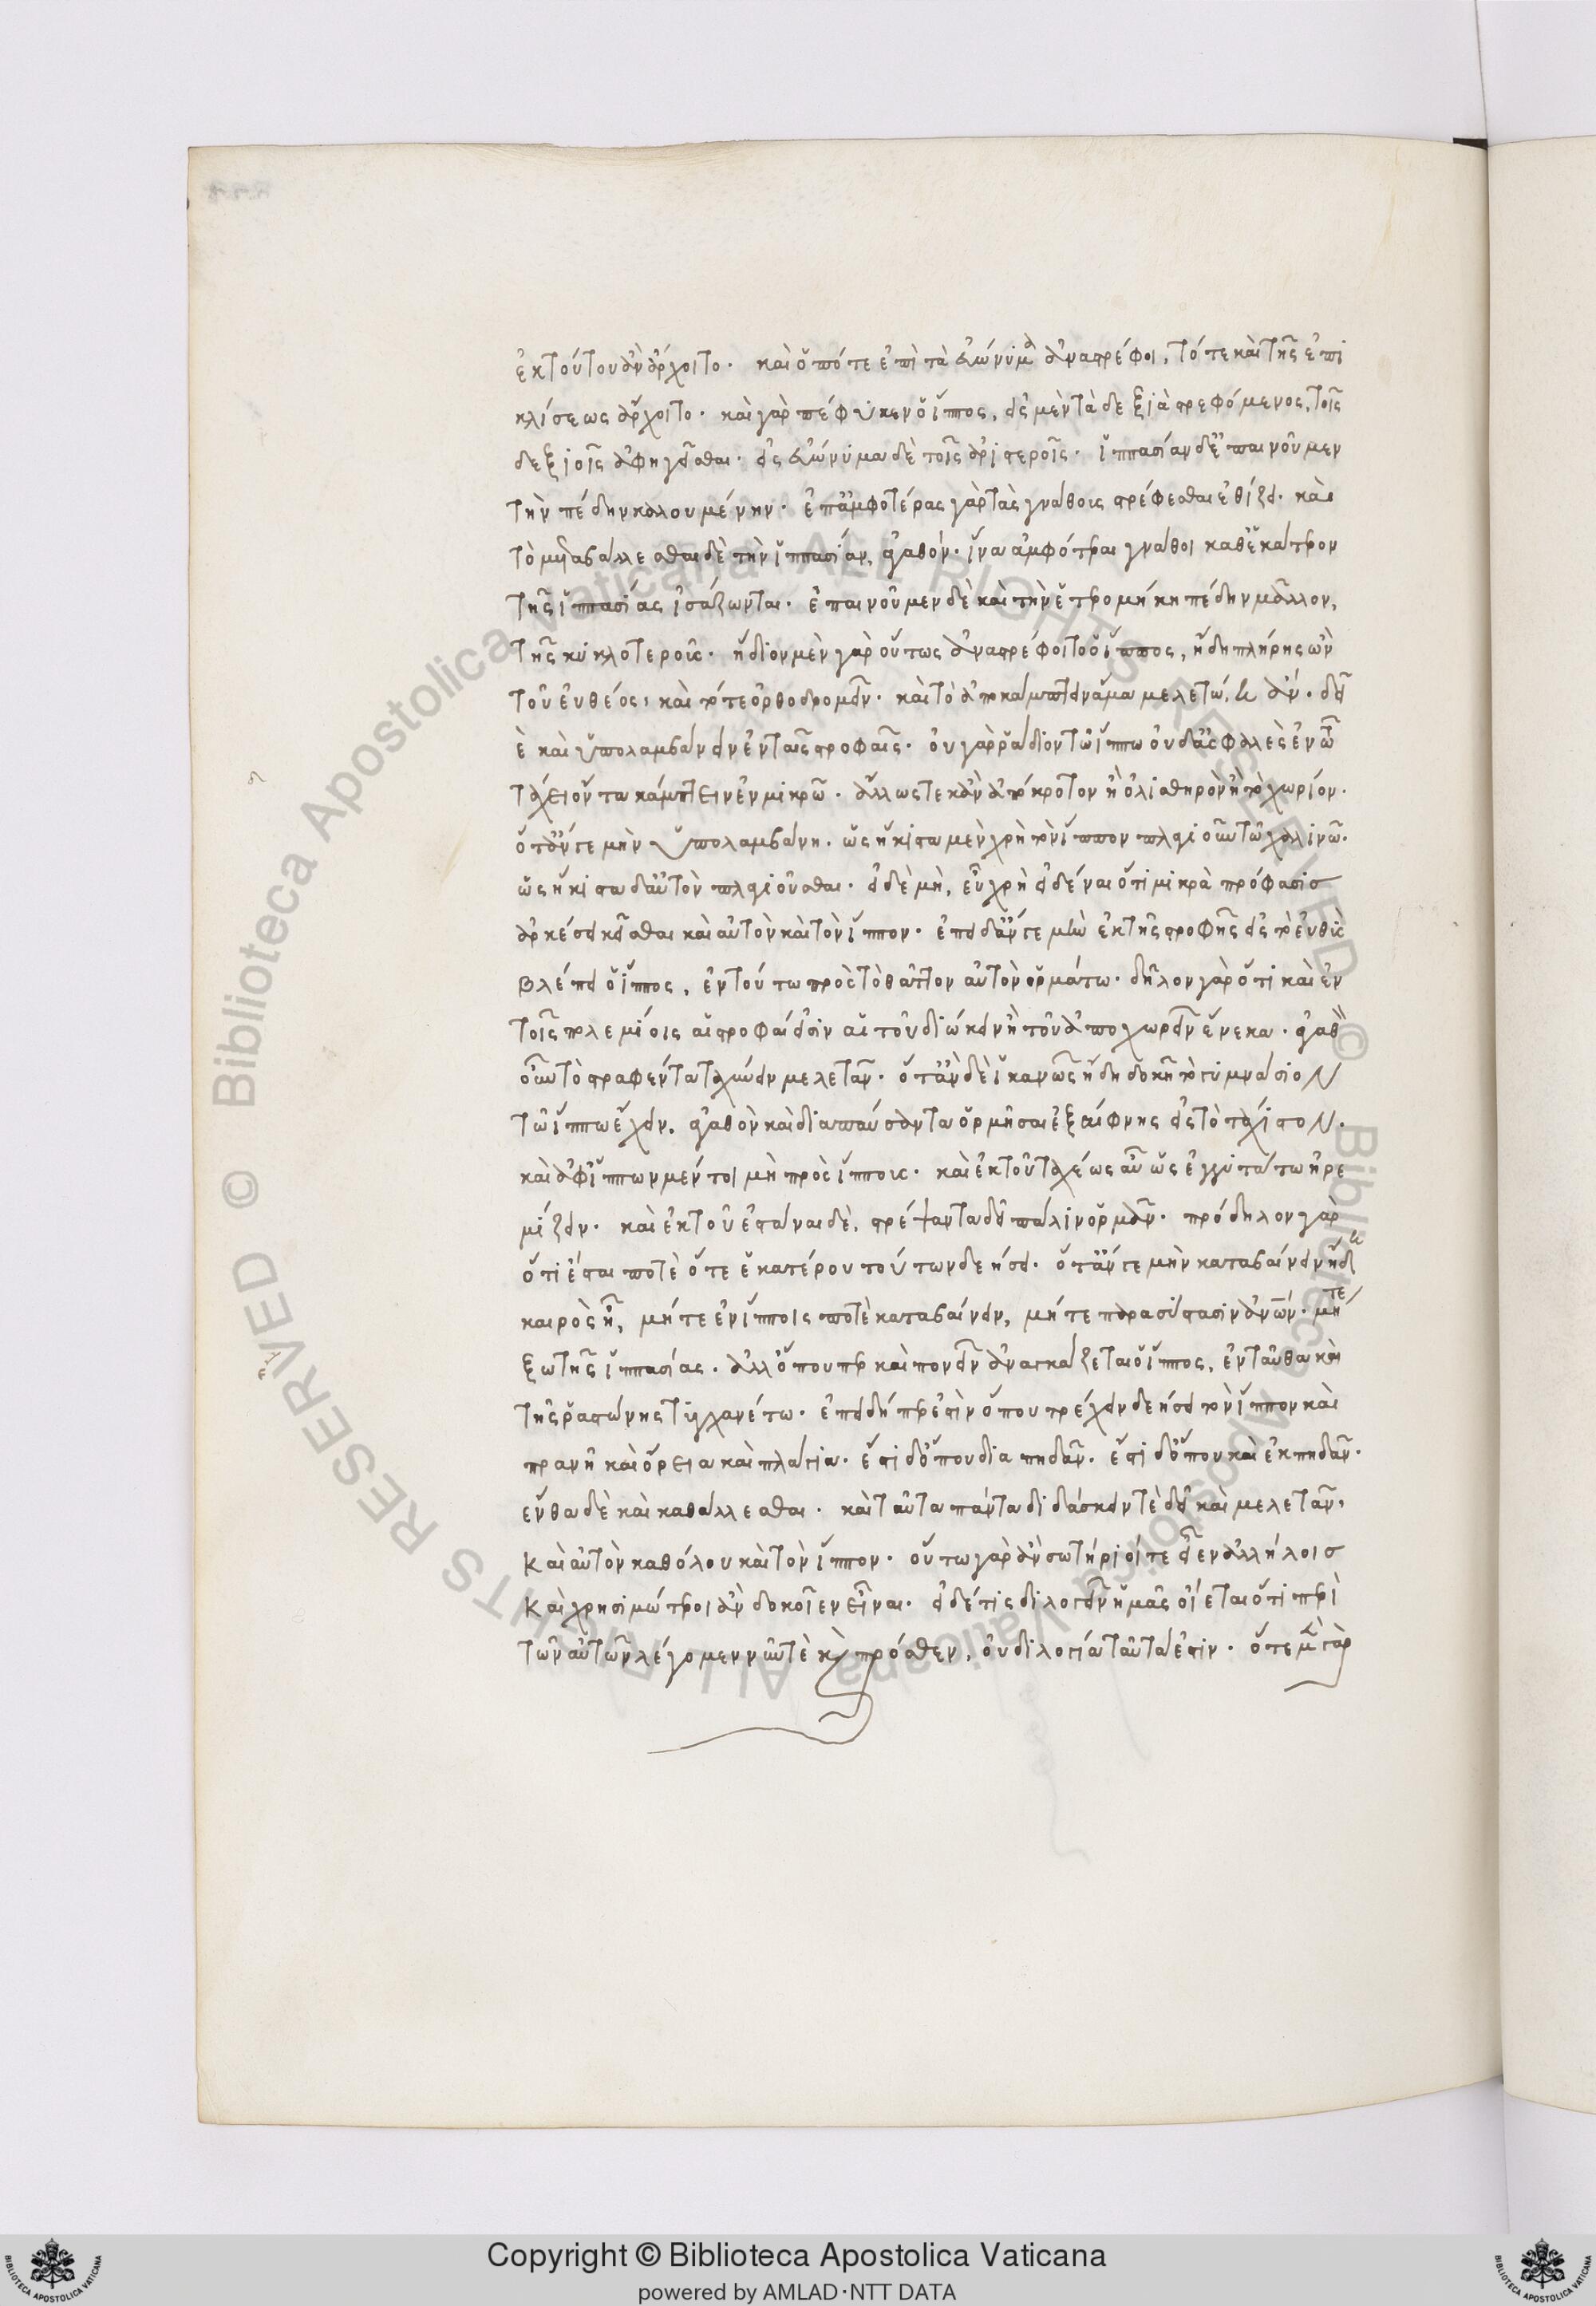 ἐκ τούτου ἂν ἄρχοιτο. καὶ ὁπότε ἐπὶ τὰ εὐώνυμα ἀναστρέφοι, τότε καὶ τῆς ἐπι
κλίσεως ἄρχοιτο. καὶ γὰρ πέφυκεν ὁ ἵππος, εἰς μὲν τὰ δεξιὰ στρεφόμενος, τοῖς
δεξιοῖς ἀφηγεῖσθαι. εἰς εὐώνυμα δὲ τοῖς ἀριστεροῖς. ἱππασίαν δ' ἐπαινοῦμεν
τὴν πέδην καλουμένην. ἐπ' ἀμφοτέρας γὰρ τὰς γνάθους στρέφεσθαι ἐθίζει. καὶ
τὸ μεταβάλλεσθαι δὲ τὴν ἱππασίαν, ἀγαθόν. ἵνα ἀμφότεραι γνάθοι καθ' ἑκάτερον
τῆς ἱππασίας ἰσάζωνται. ἐπαινοῦμεν δὲ καὶ τὴν ἑτερομήκη πέδην μᾶλλον,
τῆς κυκλοτεροῦς. ἥδιον μὲν γὰρ οὕτως ἀναστρέφοιτο ὁ ἵππος, ἤδη πλήρης ὢν
τοῦ εὐθέος, καὶ τό τε ὀρθοδρομεῖν. καὶ τὸ ἀποκάμπτειν ἅμα μελετῴη ἄν. δεῖ
δὲ καὶ ὑπολαμβάνειν ἐν ταῖς στροφαῖς. οὐ γὰρ ῥᾴδιον τῷ ἵππῳ οὐδ' ἀσφαλὲς ἐν τῷ
τάχει ὄντα κάμπτειν ἐν μικρῷ. ἄλλως τε κἂν ἀπόκροτον ἢ ὀλισθηρὸν ᾖ τὸ χωρίον.
ὅταν γε μὴν ὑπολαμβάνῃ. ὡς ἥκιστα μὲν χρὴ τὸν ἵππον πλαγιοῦν τῷ χαλινῷ.
ὡς ἥκιστα δ' αὐτὸν πλαγιοῦσθαι. εἰ δὲ μὴ, εὖ χρὴ εἰδέναι ὅτι μικρὰ πρόφασις
ἀρκέσει κεῖσθαι καὶ αὐτὸν καὶ τὸν ἵππον. ἐπειδάν γε μὴν ἐκ τῆς στροφῆς εἰς τὸ εὐθὺ
βλέπει ὁ ἵππος, ἐν τούτῳ πρὸς τὸ θᾶττον αὐτὸν ὁρμάτω. δῆλον γὰρ ὅτι καὶ ἐν
τοῖς πολεμίοις αἱ στροφαί εἰσιν αἱ τοῦ διώκειν ἢ τοῦ ἀποχωρεῖν ἕνεκα. ἀγαθὸν
οὖν τὸ στραφέντα ταχύνειν μελετᾶν. ὅταν δὲ ἱκανῶς ἤδη δοκῇ τὸ γυμνάσιον
τῷ ἵππῳ ἔχειν. ἀγαθὸν καὶ διαπαύσαντα ὁρμῆσαι ἐξαίφνης εἰς τὸ τάχιστον.
καὶ ἀφ' ἵππων μέντοι μὴ πρὸς ἵππους. καὶ ἐκ τοῦ ταχέως αὖ ὡς ἐγγυτάτω ἠρε
μίζειν. καὶ ἐκ τοῦ ἑστάναι δὲ, στρέψαντα δεῖ πάλιν ὁρμᾶν. πρόδηλον γὰρ
ὅτι ἔσται ποτὲ ὅτε ἑκατέρου τούτων δεήσει. ὅταν γε μὴν καταβαίνειν ἤδη
καιρὸς ᾖ, μήτε ἐν ἵπποις ποτὲ καταβαίνειν, μήτε παρὰ σύστασιν ἀνων. μήτε
ἔξω τῆς ἱππασίας. ἀλλ' ὅπουπερ καὶ πονεῖν ἀναγκάζεται ὁ ἵππος, ἐνταῦθα καὶ
τῆς ῥᾳστώνης τυγχανέτω. ἐπειδήπερ ἐστὶν ὅπου τρέχειν δεήσει τὸν ἵππον καὶ
πρανῆ καὶ ὄρεια καὶ πλάγια. ἔστι δ' ὅπου διαπηδᾶν. ἔστι δ' ὅπου καὶ ἐκπηδᾶν.
ἔνθα δὲ καὶ καθάλλεσθαι. καὶ ταῦτα πάντα διδάσκειν τὲ δεῖ καὶ μελετᾶν,
καὶ αὐτὸν καθόλου καὶ τὸν ἵππον. οὕτω γὰρ ἂν σωτήριοί τε εἶεν ἀλλήλοις
καὶ χρησιμώτεροι ἂν δοκοῖεν εἶναι. εἰ δέ τις διλογεῖν ἡμᾶς οἴεται ὅτι περὶ
τῶν αὐτῶν λέγομεν νῦν τὲ καὶ πρόσθεν, οὐ διλογία ταῦτά ἐστιν. ὅτε μὲν γὰρ
Copyright © Biblioteca Apostolica Vaticana
powered by AMLAD·NTT DATA